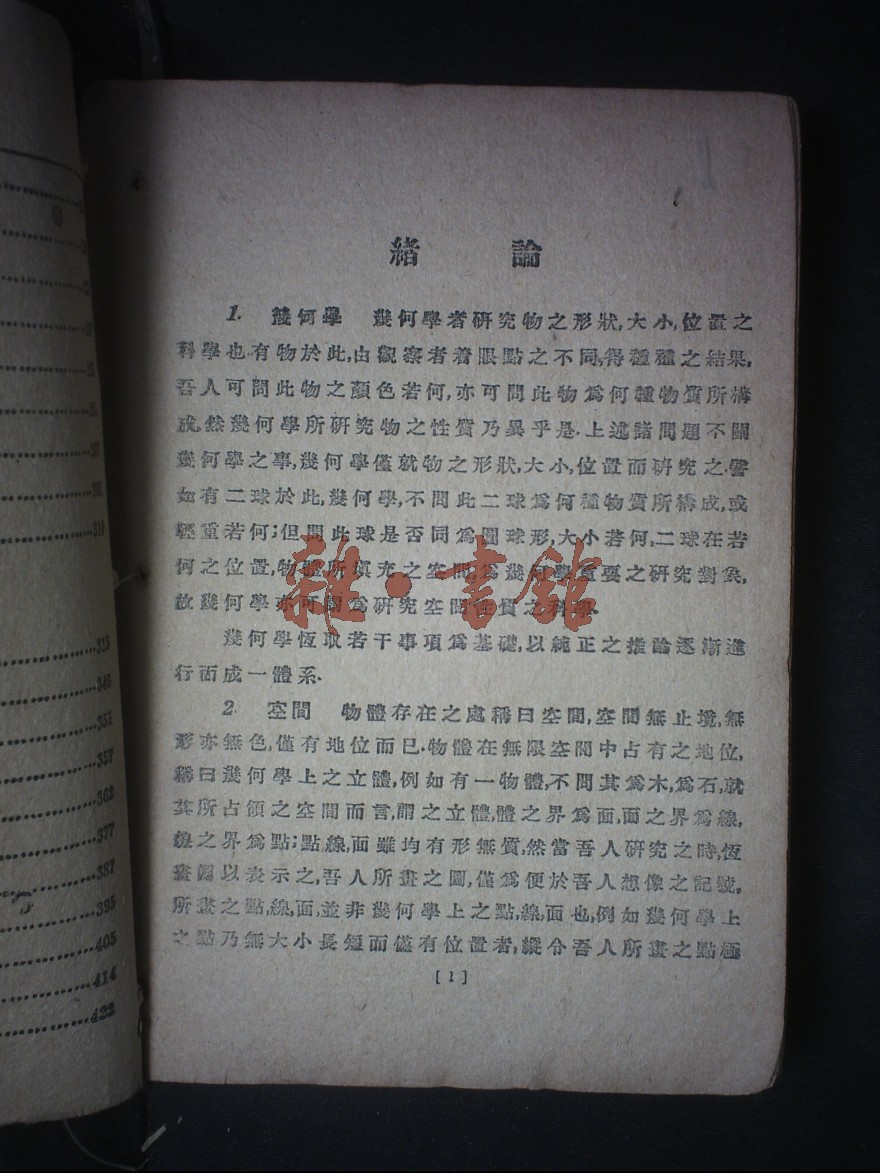 315
340
351
357
362
377
387
395
405
414
422
緒 論
1. 幾何學 幾何學者研究物之形狀,大小,位置之
科學也.有物於此,由觀察者着眼點之不同,得種種之結果,
吾人可問此物之顏色若何,亦可問此物爲何種物質所構
成.然幾何學所研究物之性質乃異乎是.上述諸問題不關
幾何學之事,幾何學僅就物之形狀,大小,位置而研究之.譬
如有二球於此,幾何學,不問此二球爲何種物質所構成,或
輕重若何;但問此球是否同爲圓球形,大小若何,二球在若
何之位置,物體所填充之空間,爲幾何學重要之研究對象,
故幾何學亦可謂爲研究空間性質之科學.
幾何學恆取若干事項爲基礎,以純正之推論逐漸進
行而成一體系.
2. 空間 物體存在之處稱曰空間,空間無止境,無
形亦無色,僅有地位而已.物體在無限空間中占有之地位,
稱曰幾何學上之立體,例如有一物體,不問其爲木,爲石,就
其所占領之空間而言,謂之立體,體之界爲面,面之界爲線,
線之界爲點;點,線,面雖均有形無質,然當吾人研究之時,恆
畫圖以表示之,吾人所畫之圖,僅爲便於吾人想像之記號,
所畫之點,線,面,並非幾何學上之點,線,面也,例如幾何學上
之點乃無大小長短而僅有位置者,縱令吾人所畫之點極
[1]
雜·書館